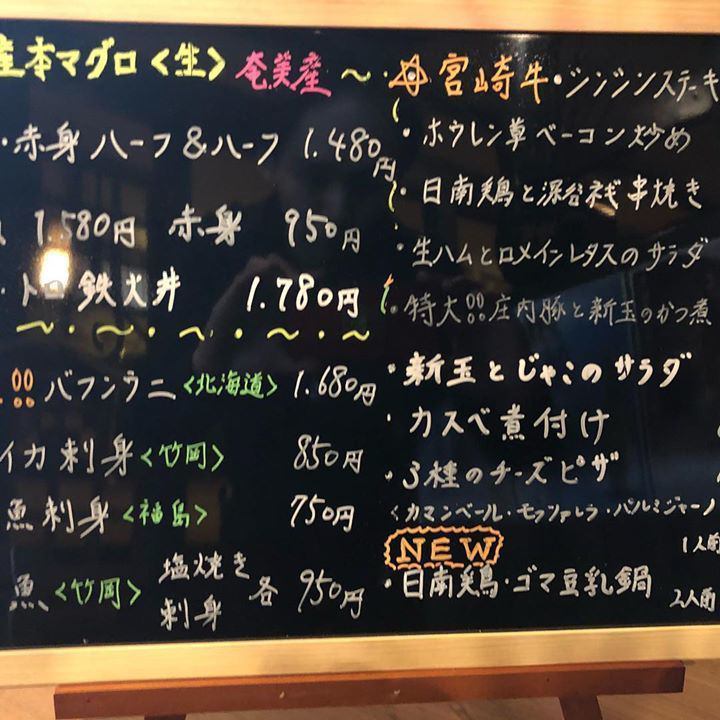 産本マグロ〈生〉奄美産
・赤身ハーフ&ハーフ 1.480円
1.580円 赤身 950円
・トロ鉄火丼 1.780円
!!バフンウニ〈北海道〉1.680円
イカ刺身〈竹岡〉 850円
魚刺身〈福島〉 750円
魚〈竹岡〉 塩焼き 刺身 各 950円
宮崎牛・シンシンステーキ
・ホウレン草ベーコン炒め
・日南鶏と深谷ネギ串焼き
・生ハムとロメインレタスのサラダ
・特大!!庄内豚と新玉のかつ煮
・新玉とじゃこのサラダ
・カスベ煮付け
・3種のチーズピザ
〈カマンベール・モッツァレラ・パルミジャーノ
NEW
1人前
・日南鶏・ゴマ豆乳鍋
2人前